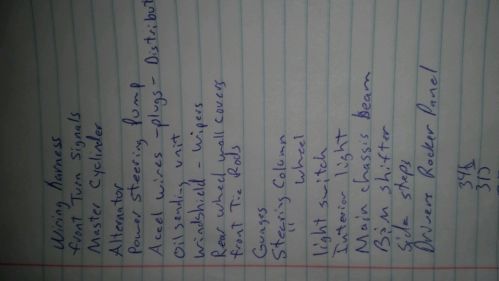 Wiring harness
front Turn Signals
Master Cylinder
Alternator
Power Steering Pump
Accel wires - plugs - Distribut
Oil sending unit
Windshield - Wipers
Rear wheel wall covers
front Tie Rods
Guages
Steering Column
" wheel
light switch
Interior light
Main chassis Beam
B&m shifter
Side steps
Drivers Rocker Panel